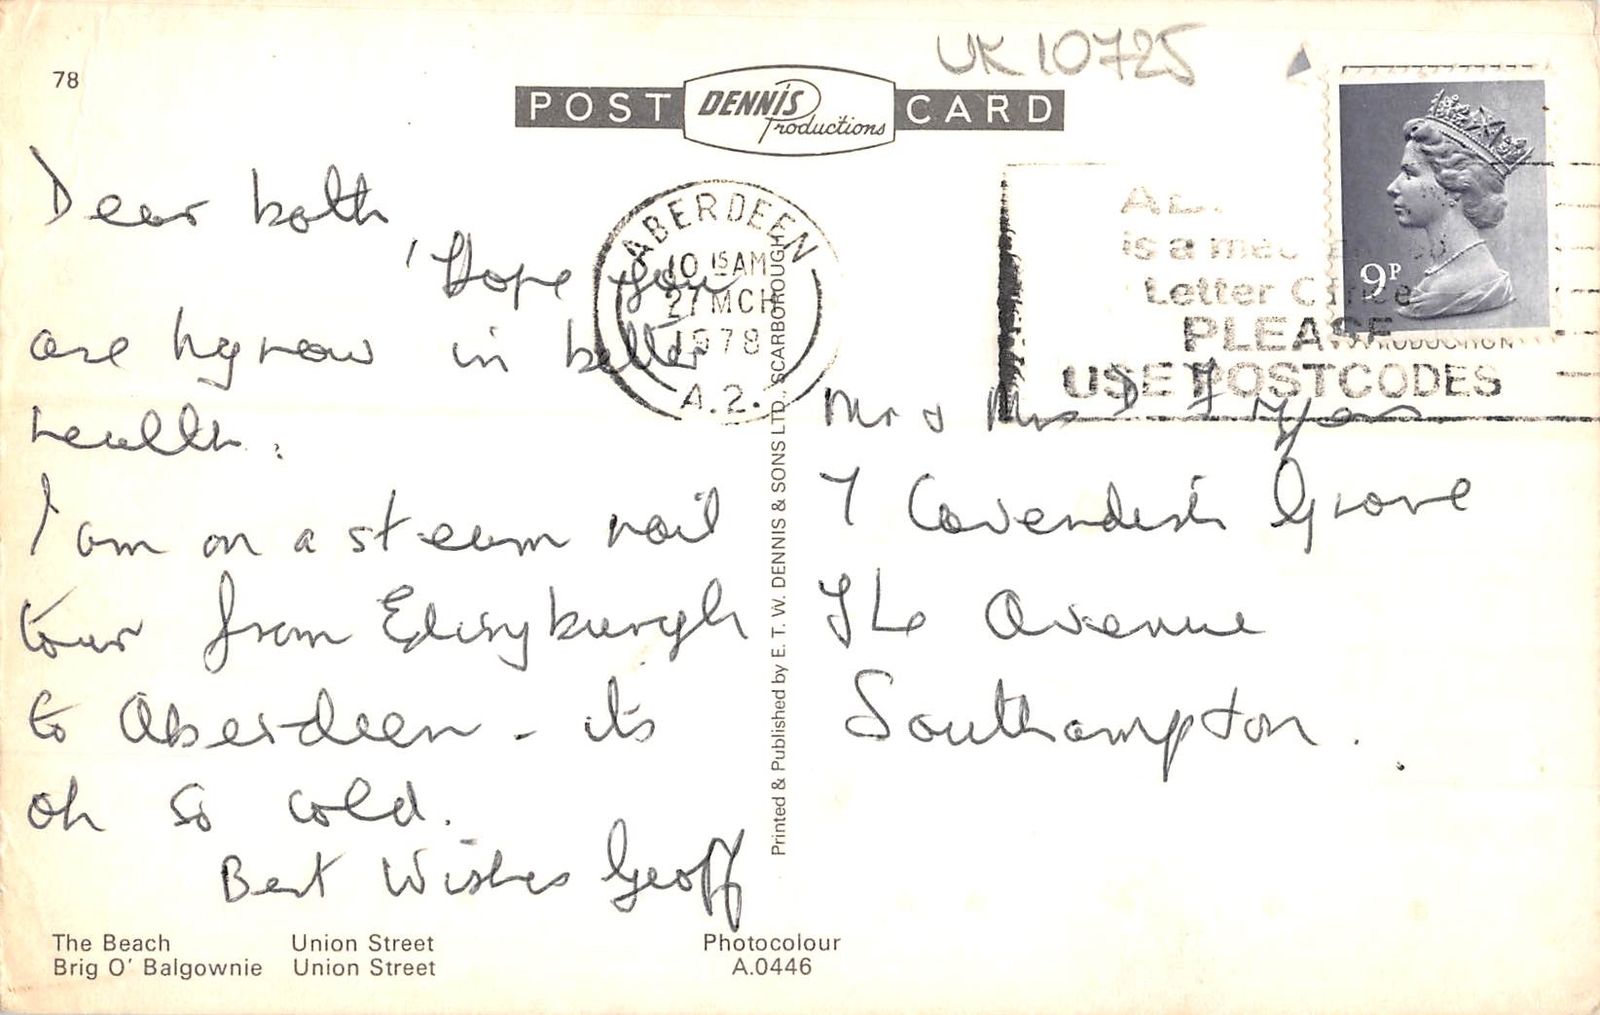 78
POST DENNIS Productions CARD
UK 10725
ABERDEEN
10 15 AM
27 MCH
1978
A.2.
is a
Letter Office
PLEASE
USE POSTCODES
9P
Dear both,
'Hope you
are by now in better
health.
I am on a steam rail
tour from Edinburgh
to Aberdeen - its
oh so cold.
Best Wishes Geoff
Printed & Published by E. T. W. DENNIS & SONS LTD., SCARBOROUGH
Mr & Mrs D I
7 Cavendish Grove
The Avenue
Southampton.
The Beach Union Street
Brig O' Balgownie Union Street
Photocolour
A.0446